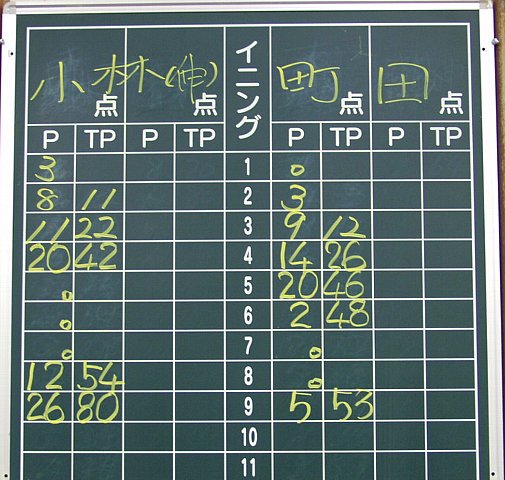 小林(伸) イニング 町田
点 点 点 点
P TP P TP P TP P TP
3 1 0
8 11 2 3
11 22 3 9 12
20 42 4 14 26
0 5 20 46
0 6 2 48
0 7 0
12 54 8 0
26 80 9 5 53
10
11